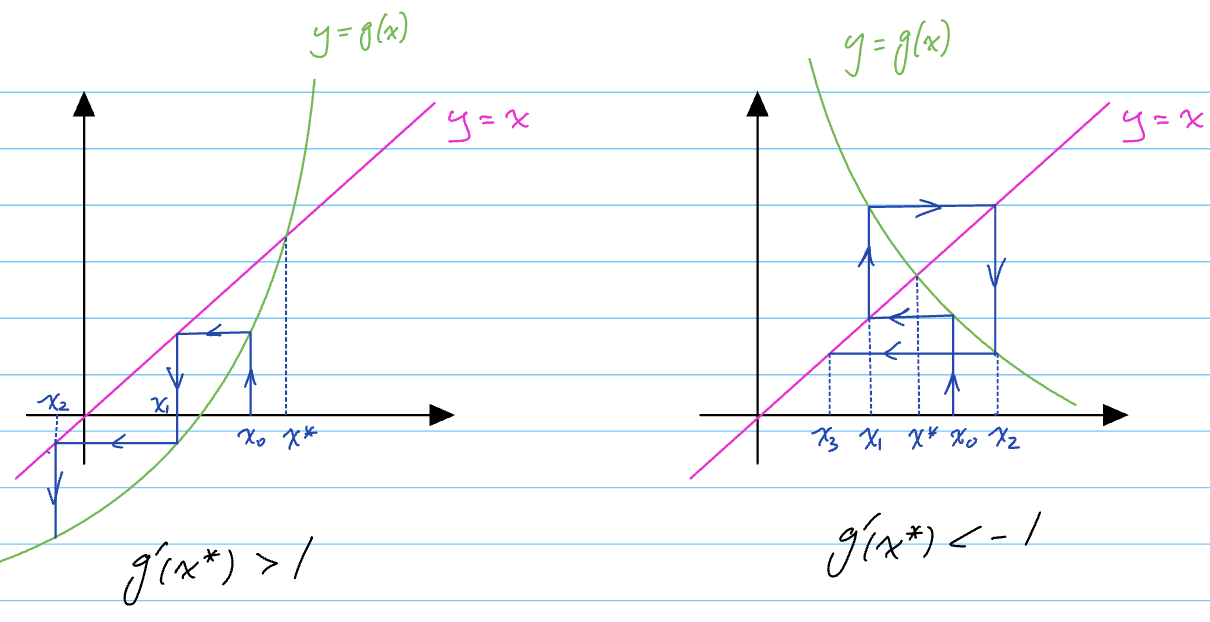 y = g(x)
y = x
x₂
x₁
x₀
x*
g'(x*) > 1
y = g(x)
y = x
x₃
x₁
x*
x₀
x₂
g'(x*) < -1